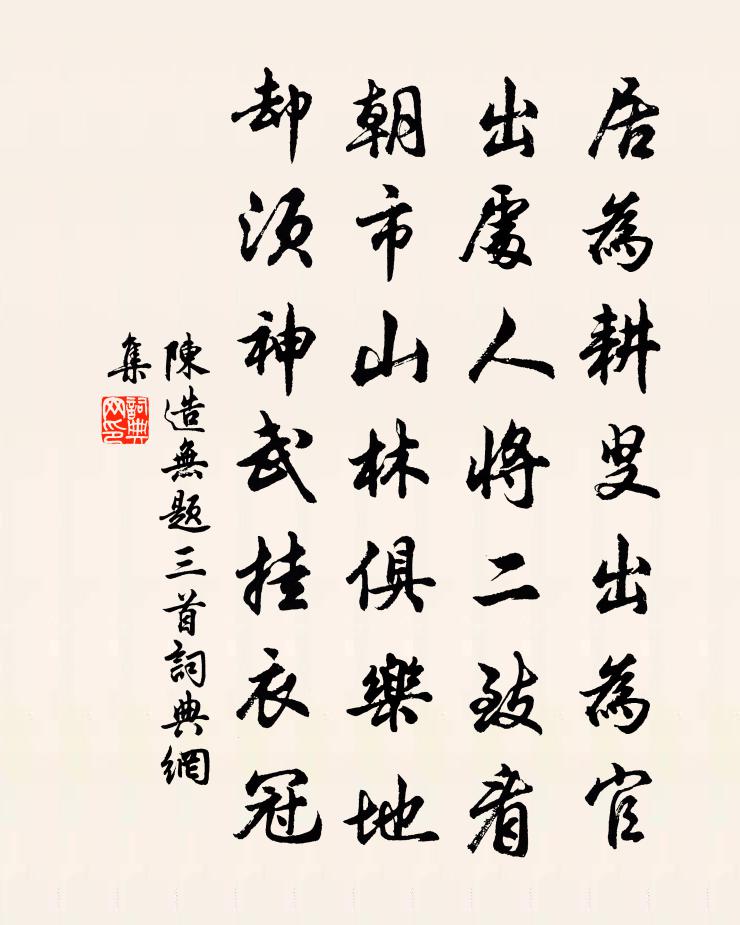 居為耕叟出為官
出處人將二致看
朝市山林俱樂地
却須神武挂衣冠
陳造無題三首詞典網
集
詞典
网印